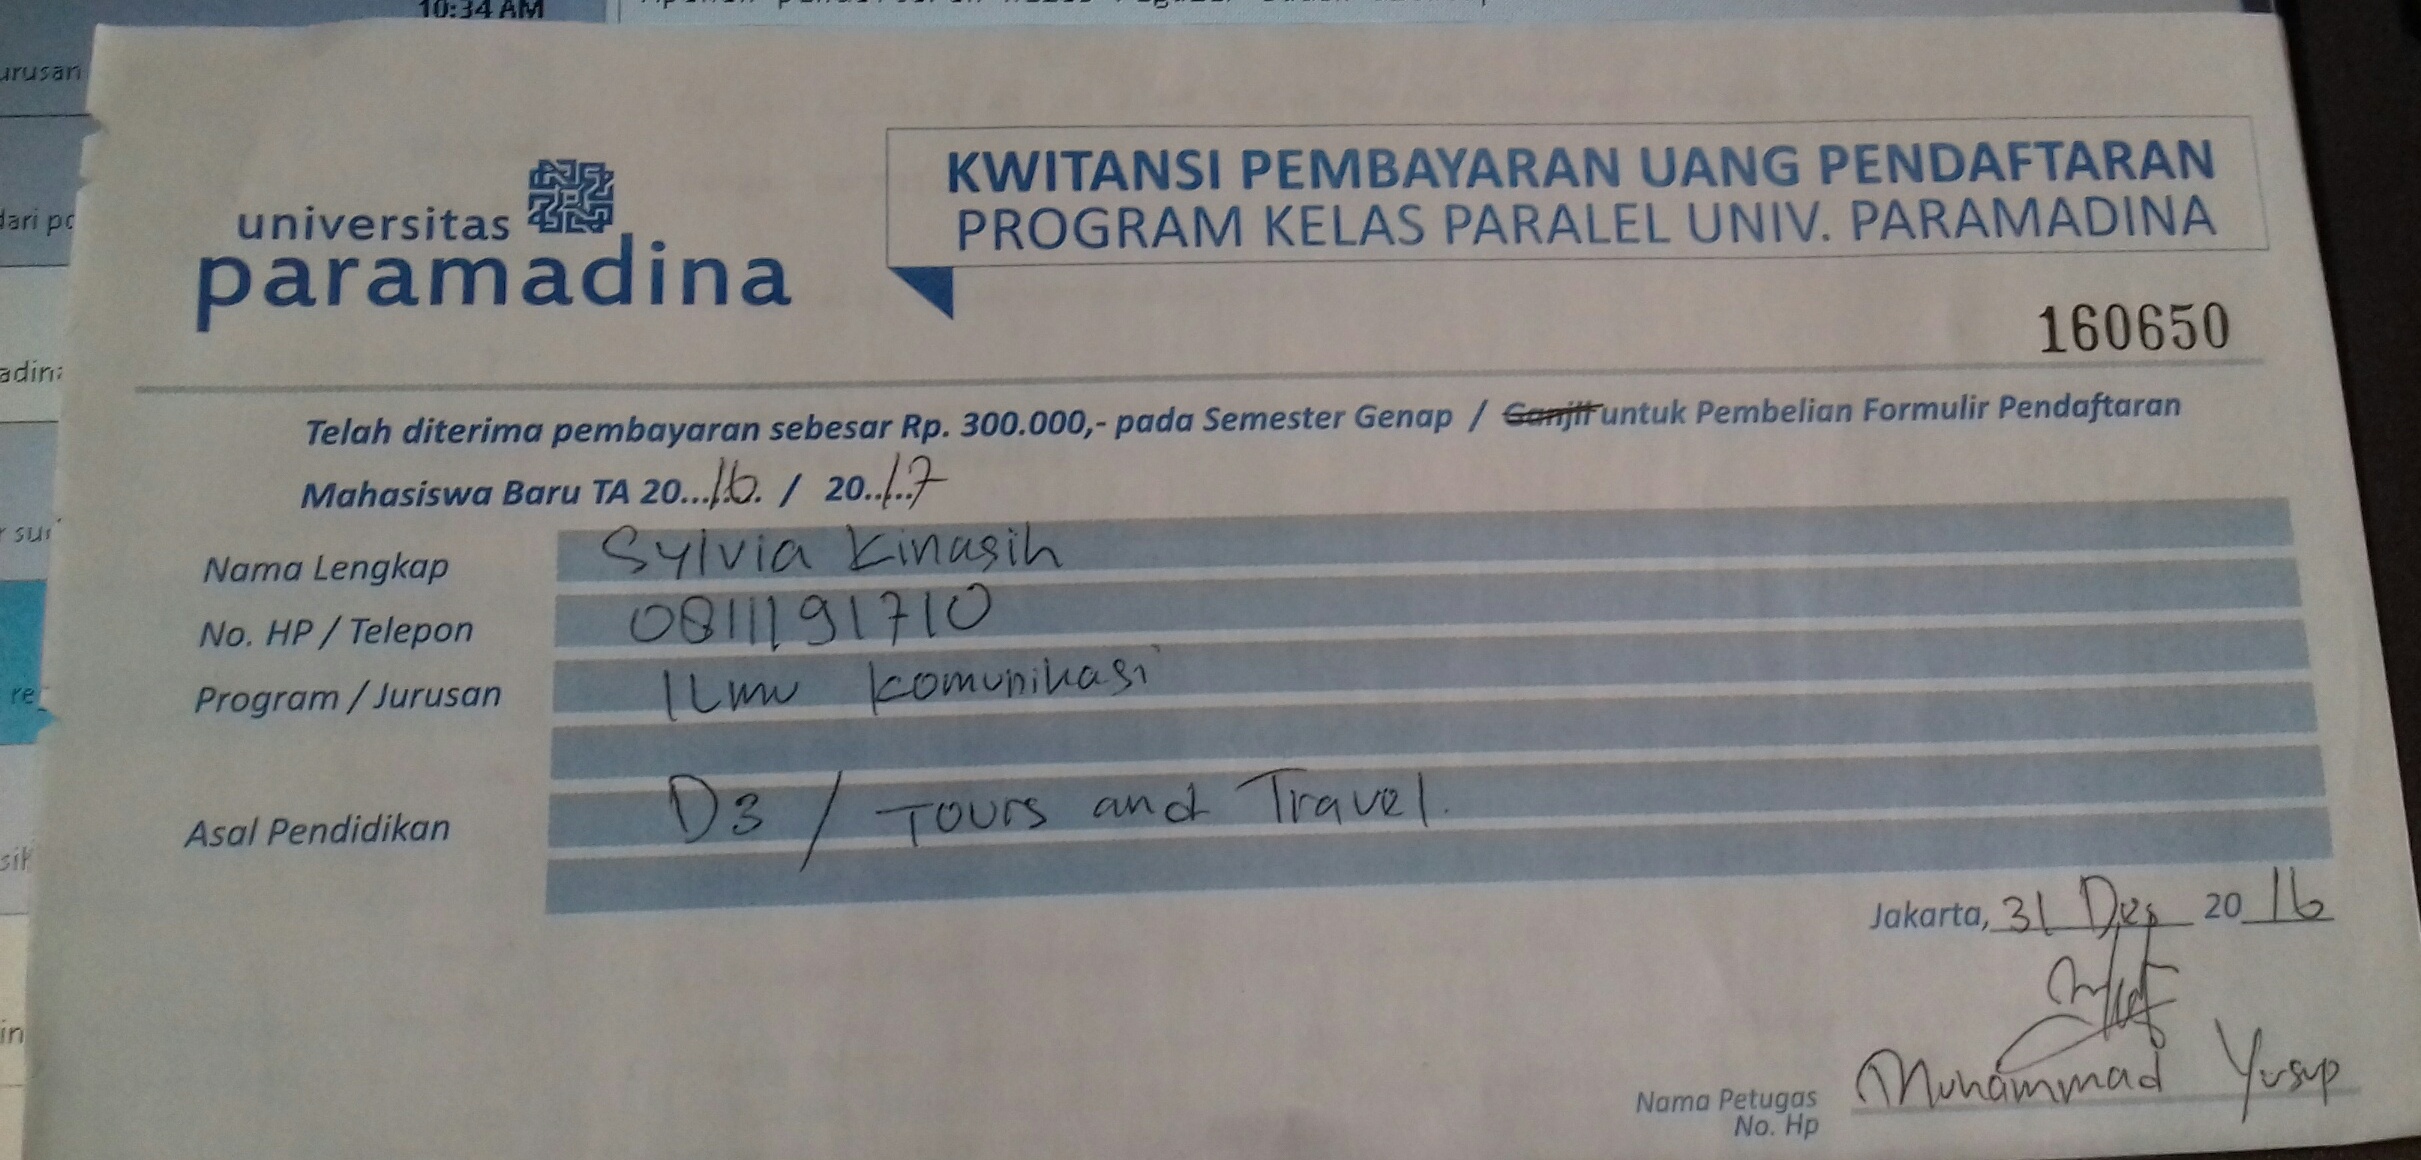 10:34 AM
urusan
dari po
adina
universitas
paramadina
KWITANSI PEMBAYARAN UANG PENDAFTARAN
PROGRAM KELAS PARALEL UNIV. PARAMADINA
160650
Telah diterima pembayaran sebesar Rp. 300.000,- pada Semester Genap / Ganjil untuk Pembelian Formulir Pendaftaran
Mahasiswa Baru TA 20...16. / 20..17
Nama Lengkap Sylvia Kinasih
No. HP / Telepon 0811191710
Program / Jurusan Ilmu Komunikasi
Asal Pendidikan D3 / Tours and Travel.
Jakarta, 31 Des 2016
Nama Petugas Muhammad Yusup
No. Hp